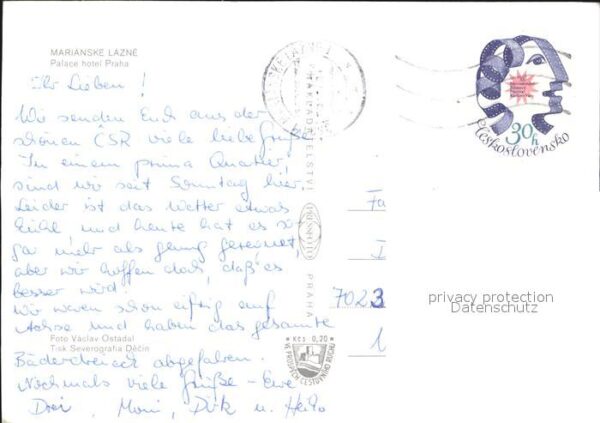 MARIÁNSKE LÁZNĚ
Palace hotel Praha
Ihr Lieben!
Wir senden Euch aus der
schönen ČSR viele liebe Grüße
In einem prima Quartier,
sind wir seit Sonntag hier,
Leider ist das Wetter etwas
kühl und heute hat es so-
gar mehr als genug geregnet,
aber wir hoffen doch, daß es
besser wird!
Wir waren schon eifrig auf
Achse und haben das gesamte
Foto Václav Ostádal
Tisk Severografia Děčín
Bäderdreieck abgefahren.
Nochmals viele Grüße - Eure
Drei, Moni, Dirk u. Heiko
30h
Československo
PRESSFOTO
PRAHA
Kčs 0,20
7023
privacy protection
Datenschutz